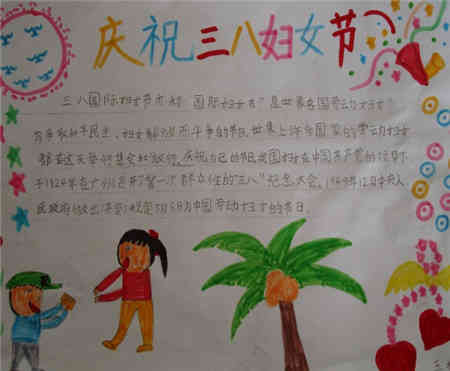 庆祝三八妇女节
三八国际妇女节亦称"国际妇女节"是世界各国劳动妇女
为争取和平民主、妇女解放而斗争的节日,世界上许多国家的劳动妇女
都在这天举行集会和游行,庆祝自己的节日我国妇女在中国共产党的领导下
于1924年在广州召开了第一次群众性的"三八"纪念大会。1949年12月中央人
民政府做出决定:规定3月8日为中国劳动妇女的节日。
三